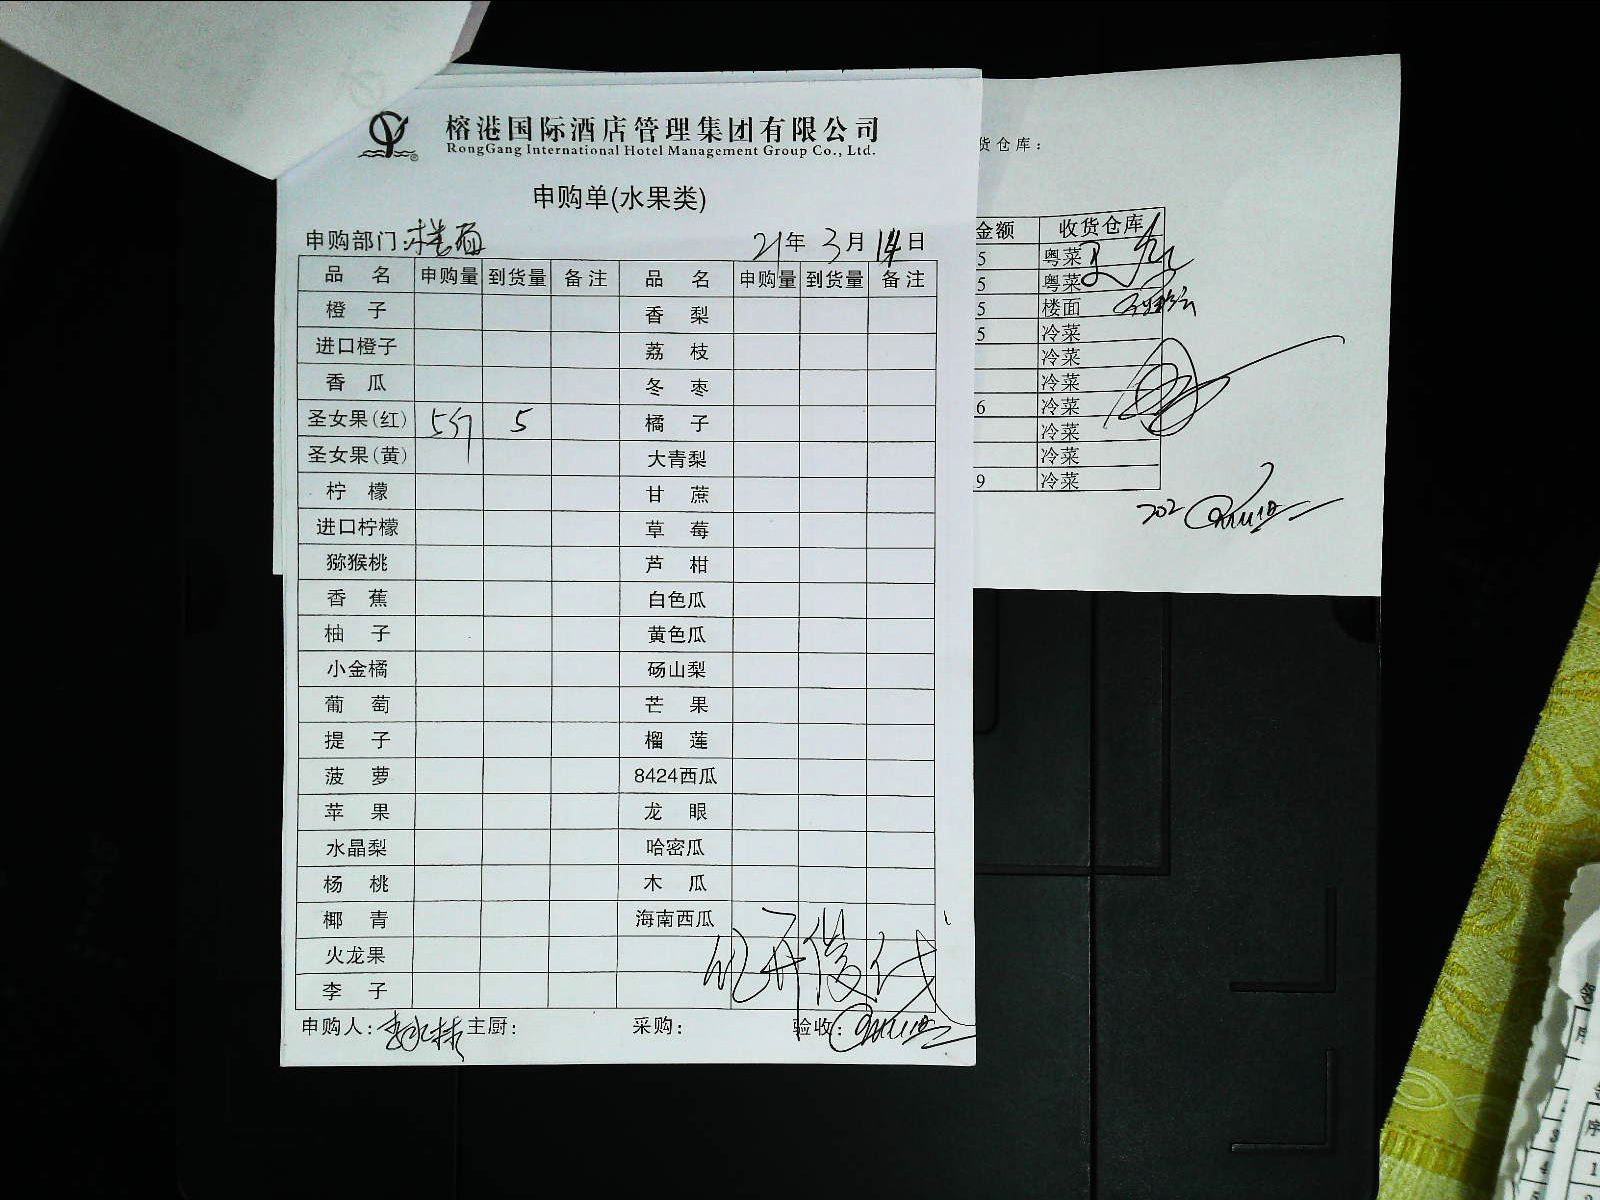 榕港国际酒店管理集团有限公司
RongGang International Hotel Management Group Co., Ltd.
申购单(水果类)
申购部门:楼面 21年 3月 14日
品 名 申购量 到货量 备注 品 名 申购量 到货量 备注
橙 子 香 梨
进口橙子 荔 枝
香 瓜 冬 枣
圣女果(红) 5斤 5 橘 子
圣女果(黄) 大青梨
柠 檬 甘 蔗
进口柠檬 草 莓
猕猴桃 芦 柑
香 蕉 白色瓜
柚 子 黄色瓜
小金橘 砀山梨
葡 萄 芒 果
提 子 榴 莲
菠 萝 8424西瓜
苹 果 龙 眼
水晶梨 哈密瓜
杨 桃 木 瓜
椰 青 海南西瓜
火龙果
李 子
申购人: 主厨: 采购: 验收:
货仓库:
金额 收货仓库
5 粤菜
5 粤菜
5 楼面
5 冷菜
冷菜
冷菜
6 冷菜
冷菜
冷菜
9 冷菜
202